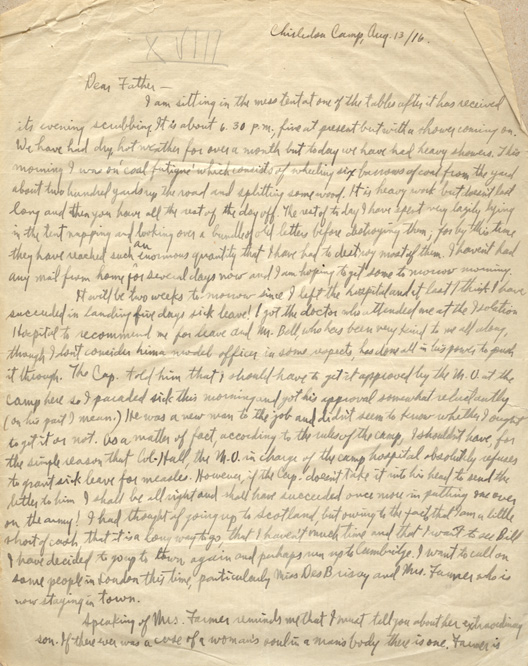 XVIII
Chiseldon Camp, Aug. 13/16.
Dear Father —
I am sitting in the mess tent at one of the tables after it has received
its evening scrubbing. It is about 6.30 p.m., fine at present but with a shower coming on.
We have had dry hot weather for over a month but today we have had heavy showers. This
morning I was on 'coal fatigue' which consists of wheeling six barrows of coal from the yard
about two hundred yards up the road and splitting some wood. It is heavy work but doesn't last
long and then you have all the rest of the day off. The rest of to day I have spent very lazily lying
in the tent napping and looking over a bundle of old letters before destroying them; for by this time
they have reached such an enormous quantity that I have had to destroy most of them. I haven't had
any mail from home for several days now and I am hoping to get some to morrow morning.
It will be two weeks to morrow since I left the hospital and at last I think I have
succeeded in landing five days sick leave! I got the doctor who attended me at the Isolation
Hospital to recommend me for leave and Mr. Bell who has been very kind to us all along,
though I don't consider him a model officer in some respects, has done all in his power to push
it through. The Cap. told him that I should have to get it approved by the M.O. at the
camp here so I paraded sick this morning and got his approval somewhat reluctantly
(on his part I mean.) He was a new man to the job and didn't seem to know whether I ought
to get it or not. As a matter of fact, according to the rules of the camp, I shouldn't have, for
the simple reason that Col. Hall, the M.O. in charge of the camp hospital absolutely refuses
to grant sick leave for measles. However, if the Cap. doesn't take it into his head to send the
letter to him I shall be all right and shall have succeeded once more in putting one over
on the army! I had thought of going up to Scotland, but owing to the fact that I am a little
short of cash, that it is a long way to go, that I haven't much time and that I want to see Bill
I have decided to go up to town again and perhaps run up to Cambridge. I want to call on
some people in London this time, particularly Miss Des Brisay and Mrs. Farmer who is
now staying in town.
Speaking of Mrs. Farmer reminds me that I must tell you about her extraordinary
son. If there ever was a case of a woman's soul in a man's body there is one. Farmer is